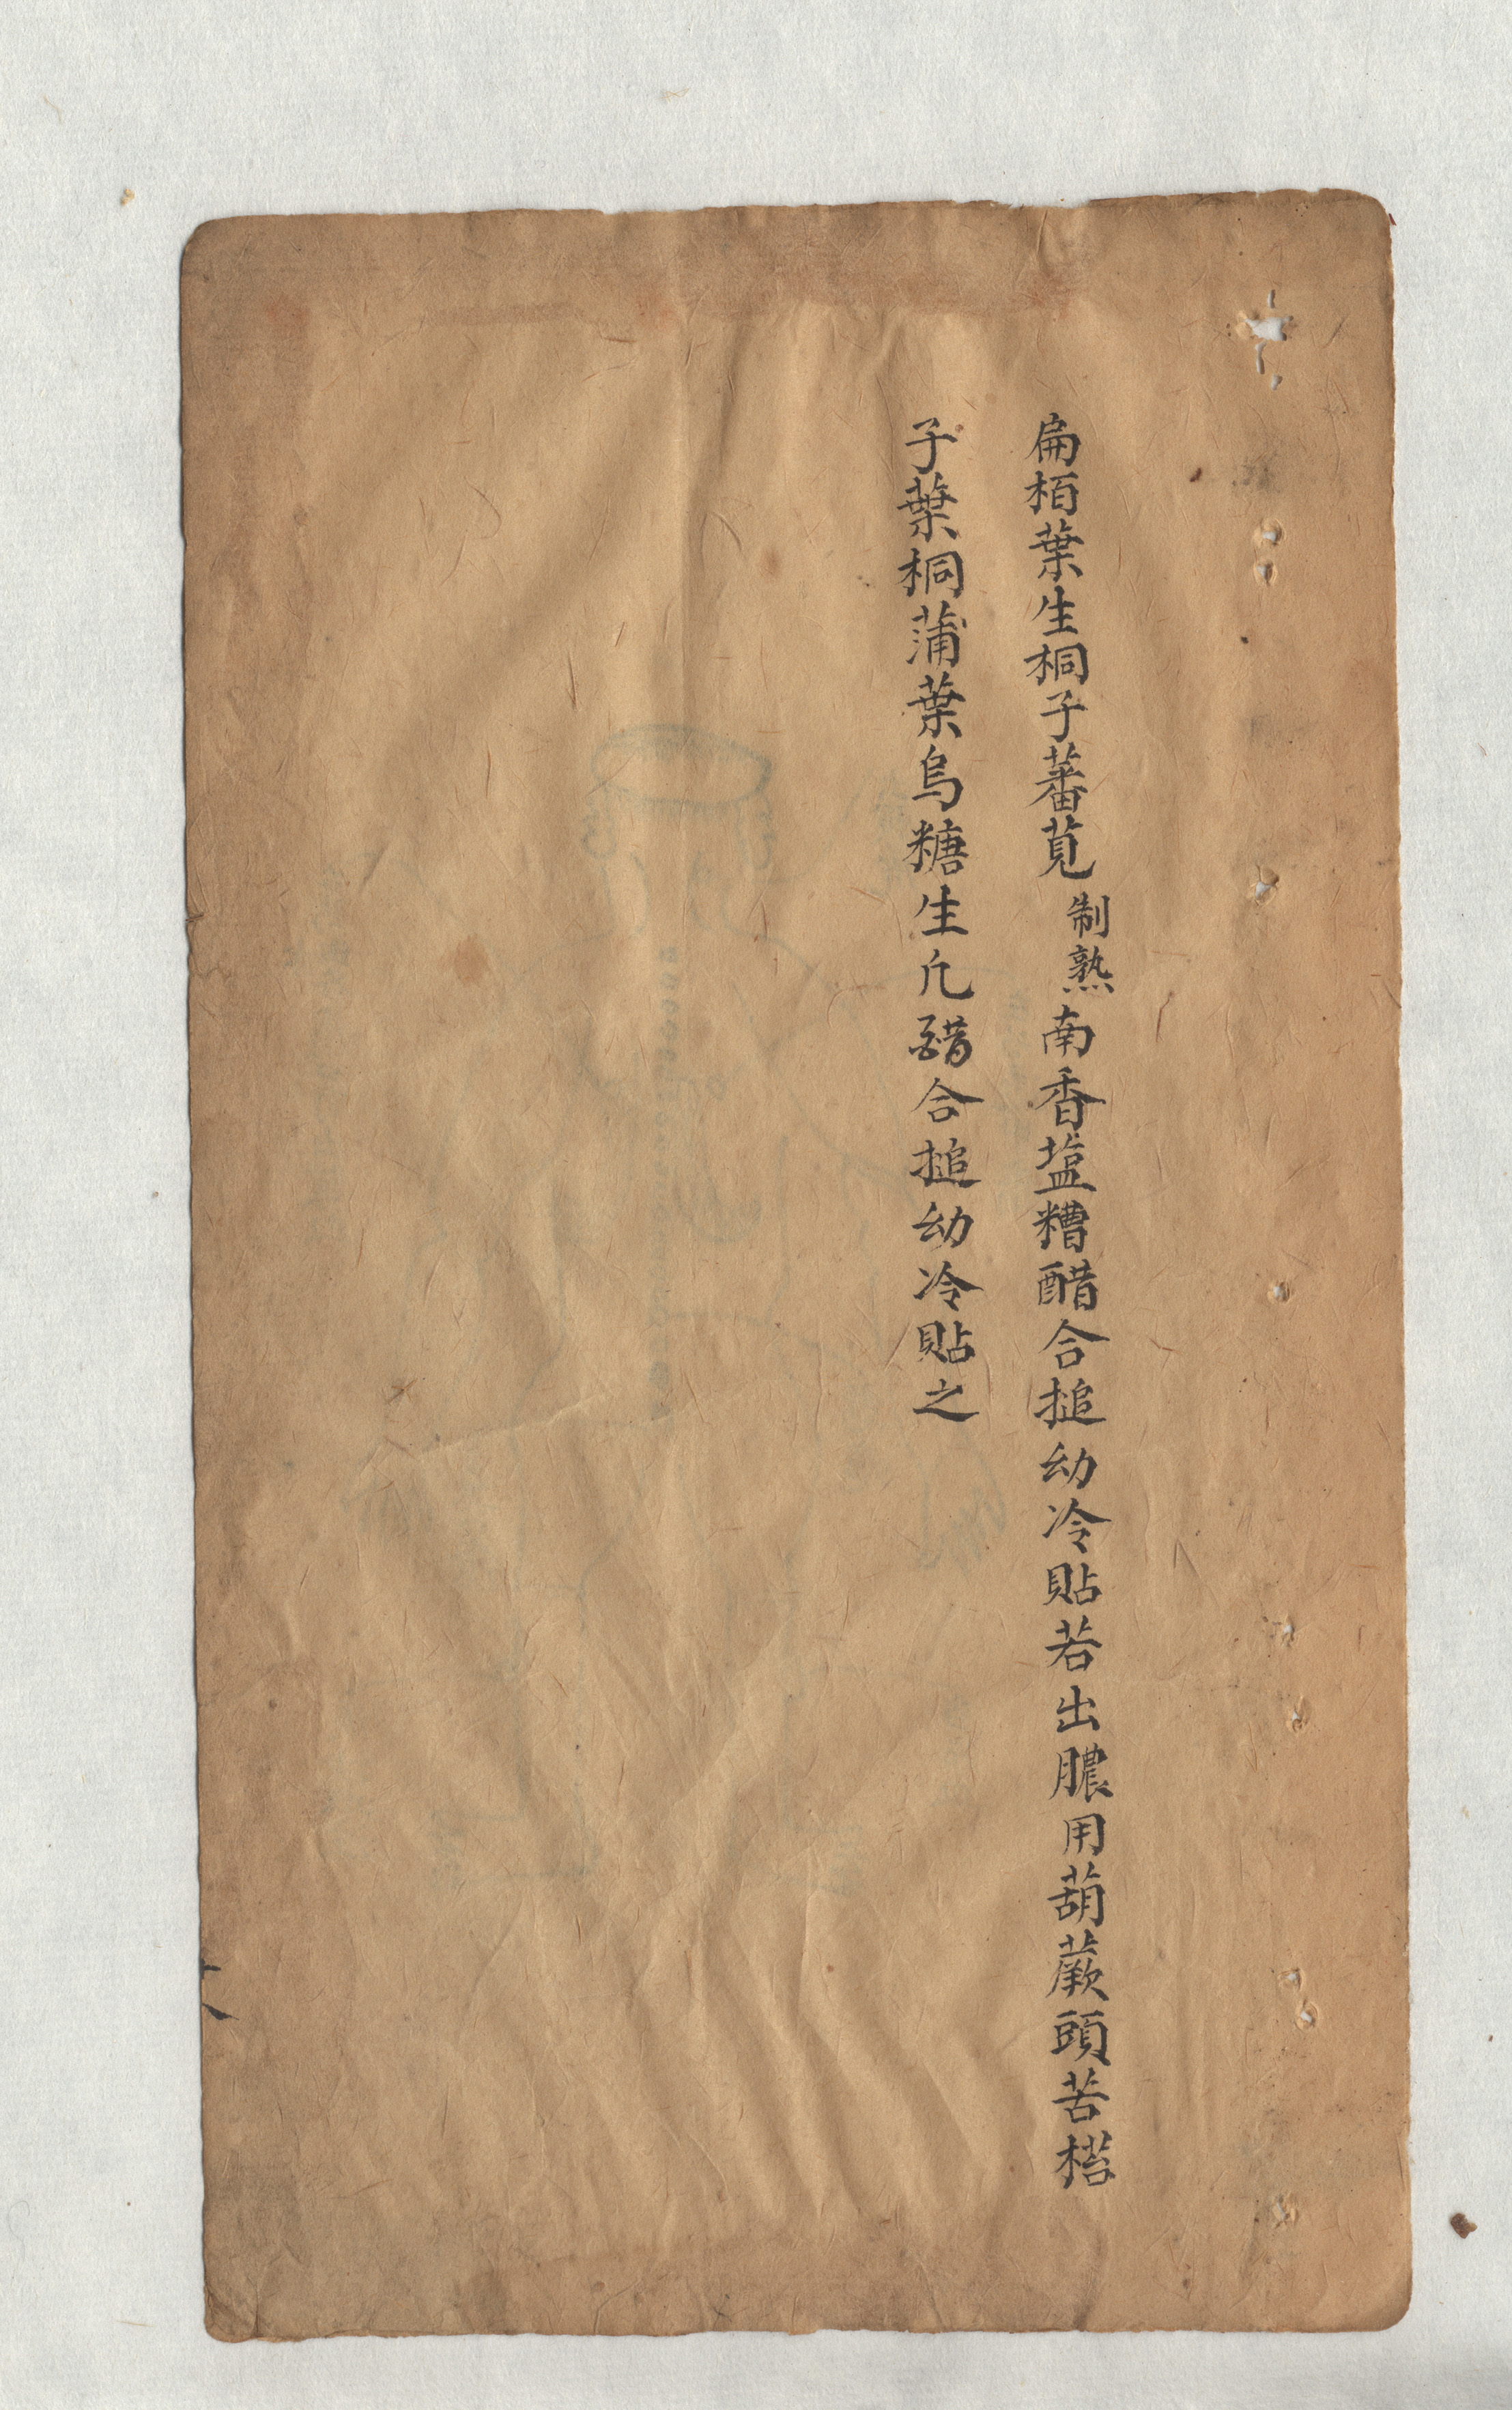 扁栢葉生桐子蕃莧制熟南香塩糟醋合搥幼冷貼若出膿用葫蕨頭苦㮟
子葉桐蒲葉烏糖生凢醋合搥幼冷貼之